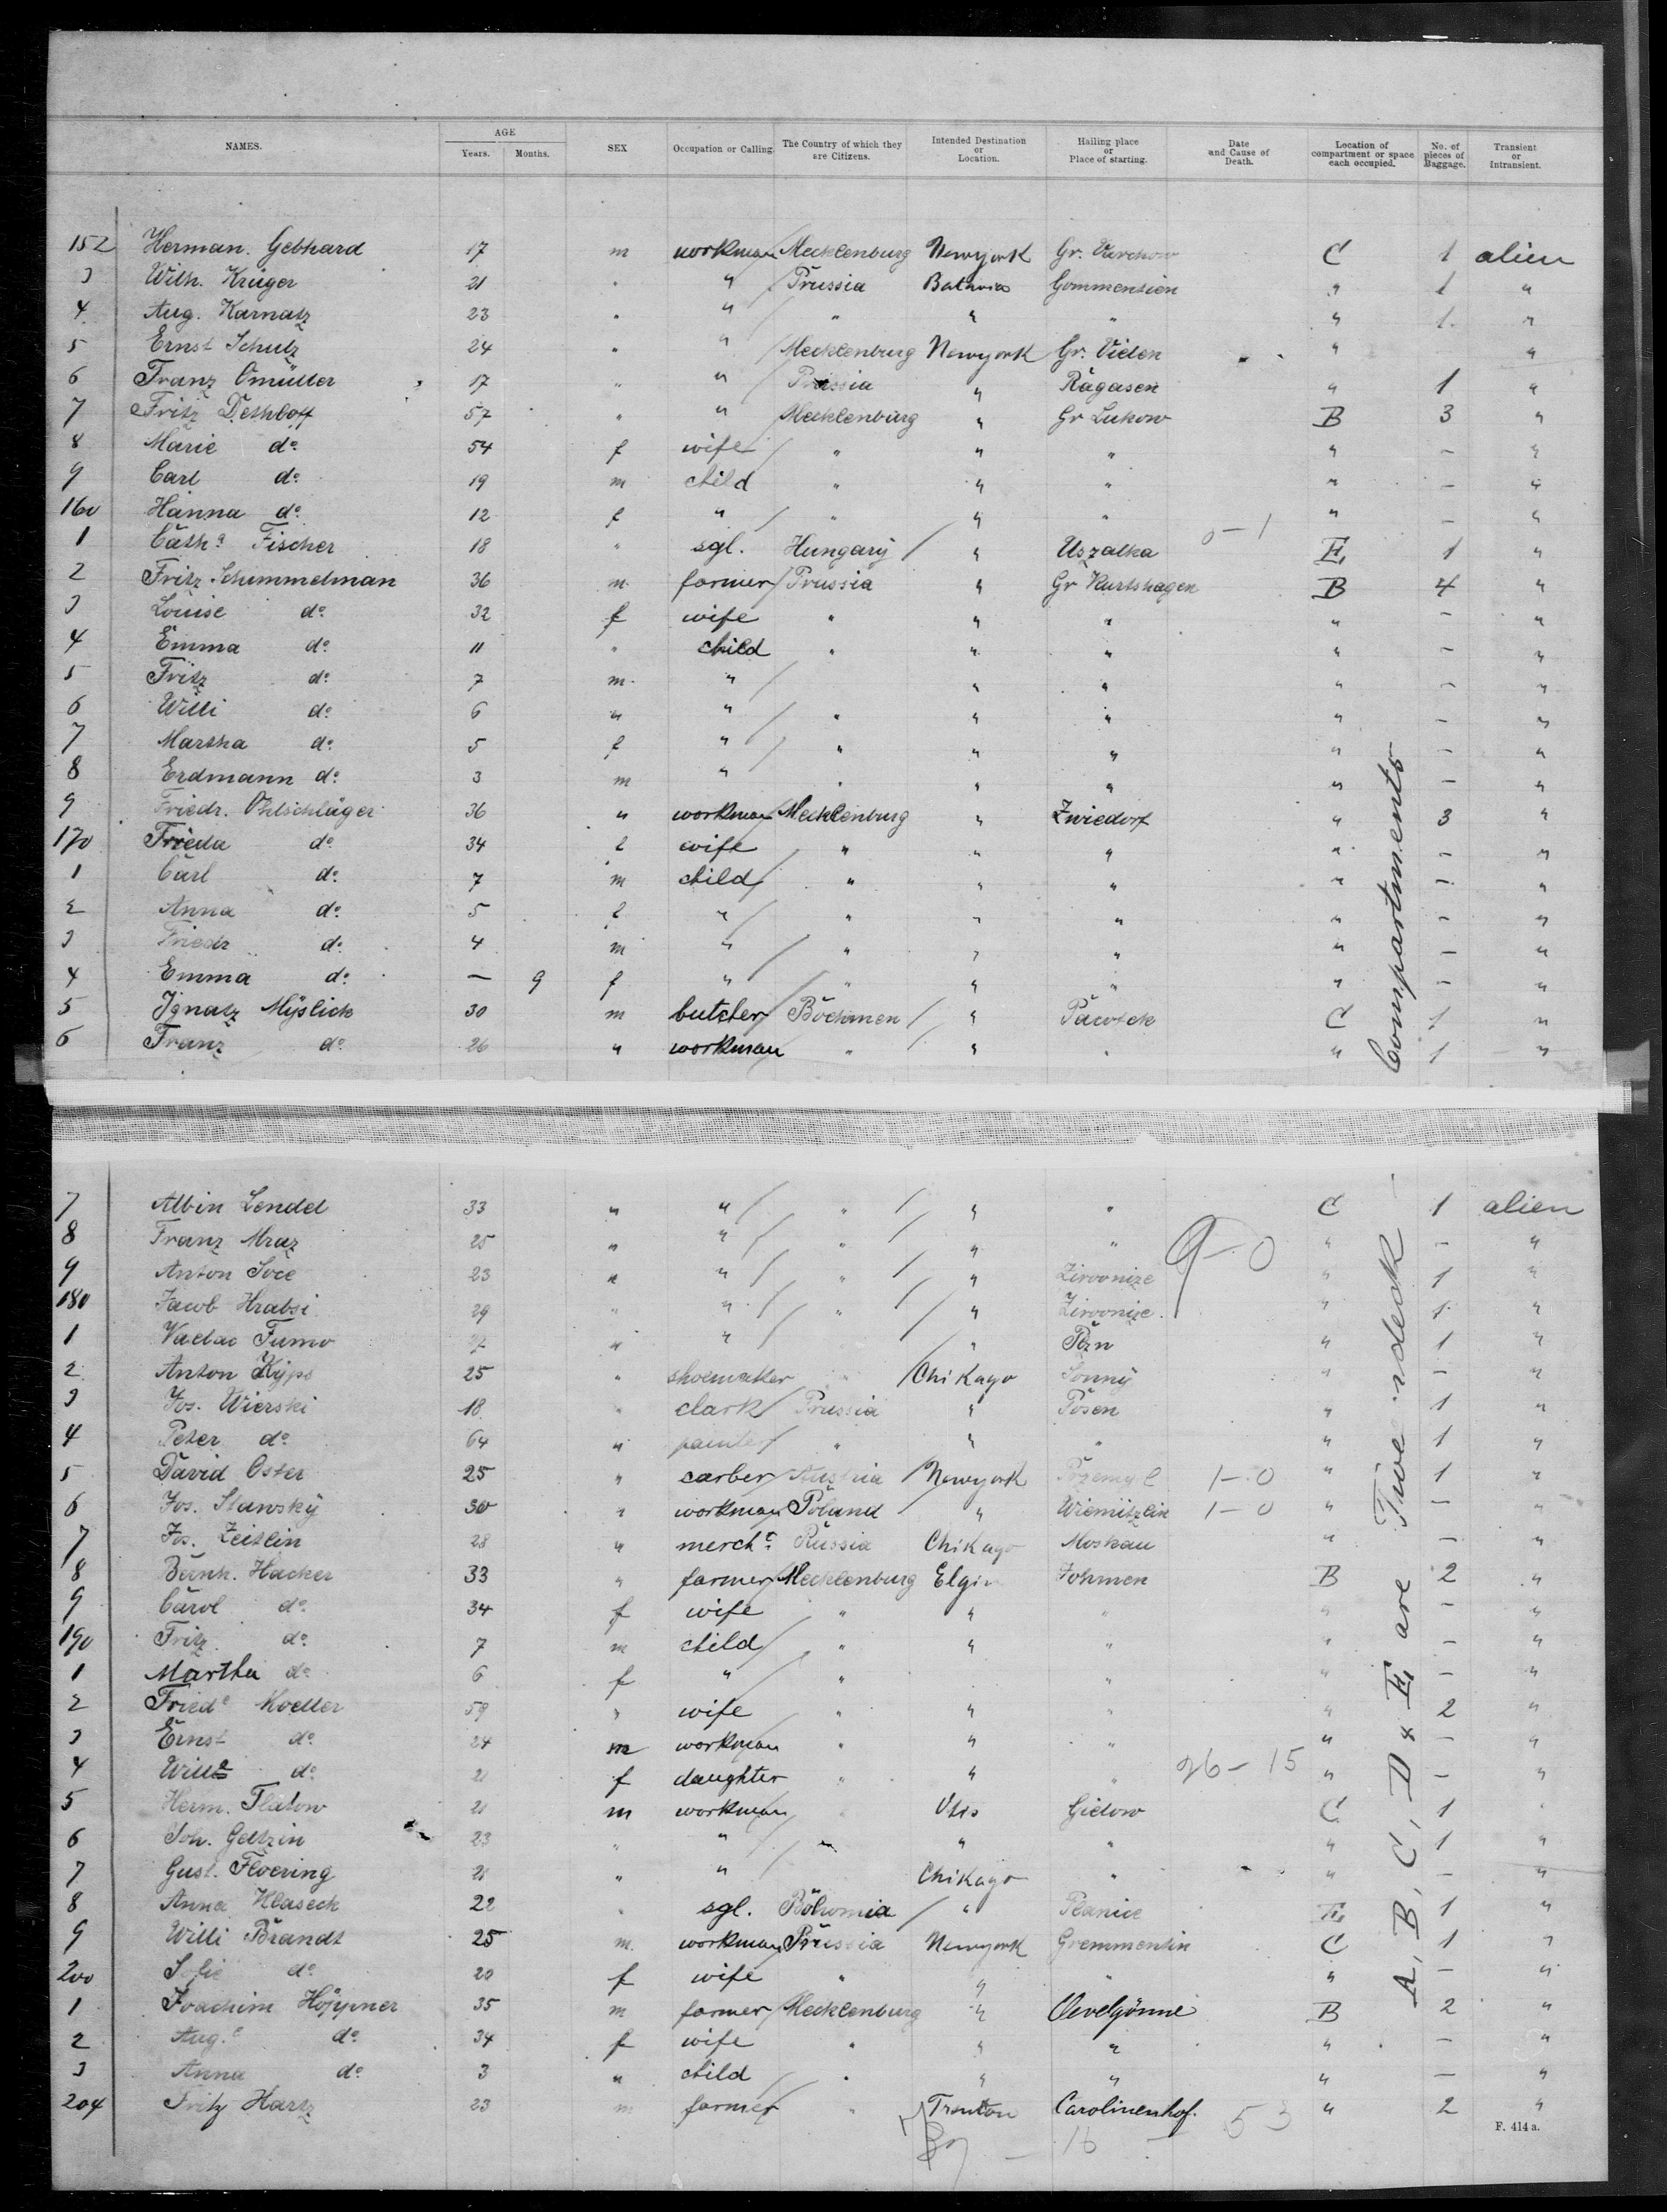 NAMES. AGE Years. Months. SEX Occupation or Calling. The Country of which they are Citizens. Intended Destination or Location. Hailing place or Place of starting. Date and Cause of Death. Location of compartment or space each occupied. No. of pieces of Baggage. Transient or Intransient.
152 Herman. Gebhard 17 m workman Mecklenburg Newyork Gr. Varchow C 1 alien
3 Wilh. Krüger 21 " " Prussia Batavia Gommensien " 1 "
4 Aug. Karnatz 23 " " " " " " 1. "
5 Ernst Schulz 24 " " Mecklenburg Newyork Gr. Vielen " "
6 Franz Omüller 17 " " Prussia " Rägasen " 1 "
7 Fritz Dethloff 57 " " Mecklenburg " Gr Lukow B 3 "
8 Marie do 54 f wife " " " " – "
9 Carl do 19 m child " " " " – "
160 Hanna do 12 f " " " " " – "
1 Catha Fischer 18 " sgl. Hungary " Uszalka 0–1 E 1 "
2 Fritz Schummelman 36 m farmer Prussia " Gr Kurtshagen B 4 "
3 Louise do 32 f wife " " " " – "
4 Emma do 11 " child " " " " – "
5 Fritz do 7 m " " " " – "
6 Willi do 6 " " " " " " – "
7 Martha do 5 f " " " " " – "
8 Erdmann do 3 m " " " " " – "
9 Friedr. Ohlschläger 36 " workman Mecklenburg " Zwiedorf " 3 "
170 Frieda do 34 f wife " " " " – "
1 Carl do 7 m child " " " " – "
2 Anna do 5 f " " " " " – "
3 Friedr do 4 m " " " " " – "
4 Emma do — 9 f " " " " " – "
5 Ignatz Myslick 30 m butcher Böehmen " Pacofck C 1 "
6 Franz do 26 " workman " " " " 1 "
7 Albin Lendel 33 " " " " " C 1 alien
8 Franz Mraz 25 " " " " " 9–0 " – "
9 Anton Svec 23 " " " " Zirovnize " 1 "
180 Jacob Hrabsi 29 " " " " Zirovnize " 1 "
1 Vaclac Tumo " " " 1 "
2 Anton Kyps 25 " shoemaker " Chikago Sonny " – "
3 Jos. Wierski 18 " clark Prussia " Posen " 1 "
4 Peter do 64 " painter " " " " 1 "
5 David Oster 25 " carber Austria Newyork Przemysl 1–0 " 1 "
6 Jos. Slawsky 30 " workman Poland " Wiemitzlin 1–0 " – "
7 Jos. Zeitlin 28 " mercht Russia Chikago Moskau " – "
8 Bernh. Hacker 33 " farmer Mecklenburg Elgin Johmen B 2 "
9 Carol do 34 f wife " " " " – "
190 Fritz do 7 m child " " " " – "
1 Martha do 6 f " " " " – "
2 Frieda Moeller 59 " wife " " " " 2 "
3 Ernst do 24 m workman " " " " – "
4 do 21 f daughter " " " 26–15 " – "
5 Herm. Flatow 21 m workman " Otis Gielow C 1 "
6 Joh. Geltzin 23 " " " " " " 1 "
7 Gust. Floering 21 " " Chikago " " – "
8 Anna Hlaseck 22 " sgl. Böhomia " Planice E 1 "
9 Willi Brandt 25 m. workman Prussia Newyork Gremmentin C 1 "
200 Sofie do 20 f wife " " " " – "
1 Joachim Höppner 35 m farmer Mecklenburg " Oevelgönne B 2 "
2 Auge do 34 f wife " " " " – "
3 Anna do 3 " child " " " " – "
204 Fritz Hartz 23 m farmer " Trenton Carolinenhof. " 2 "
Compartments
A, B, C, D & E are Twe ndeck
16 – 53
F. 414 a.